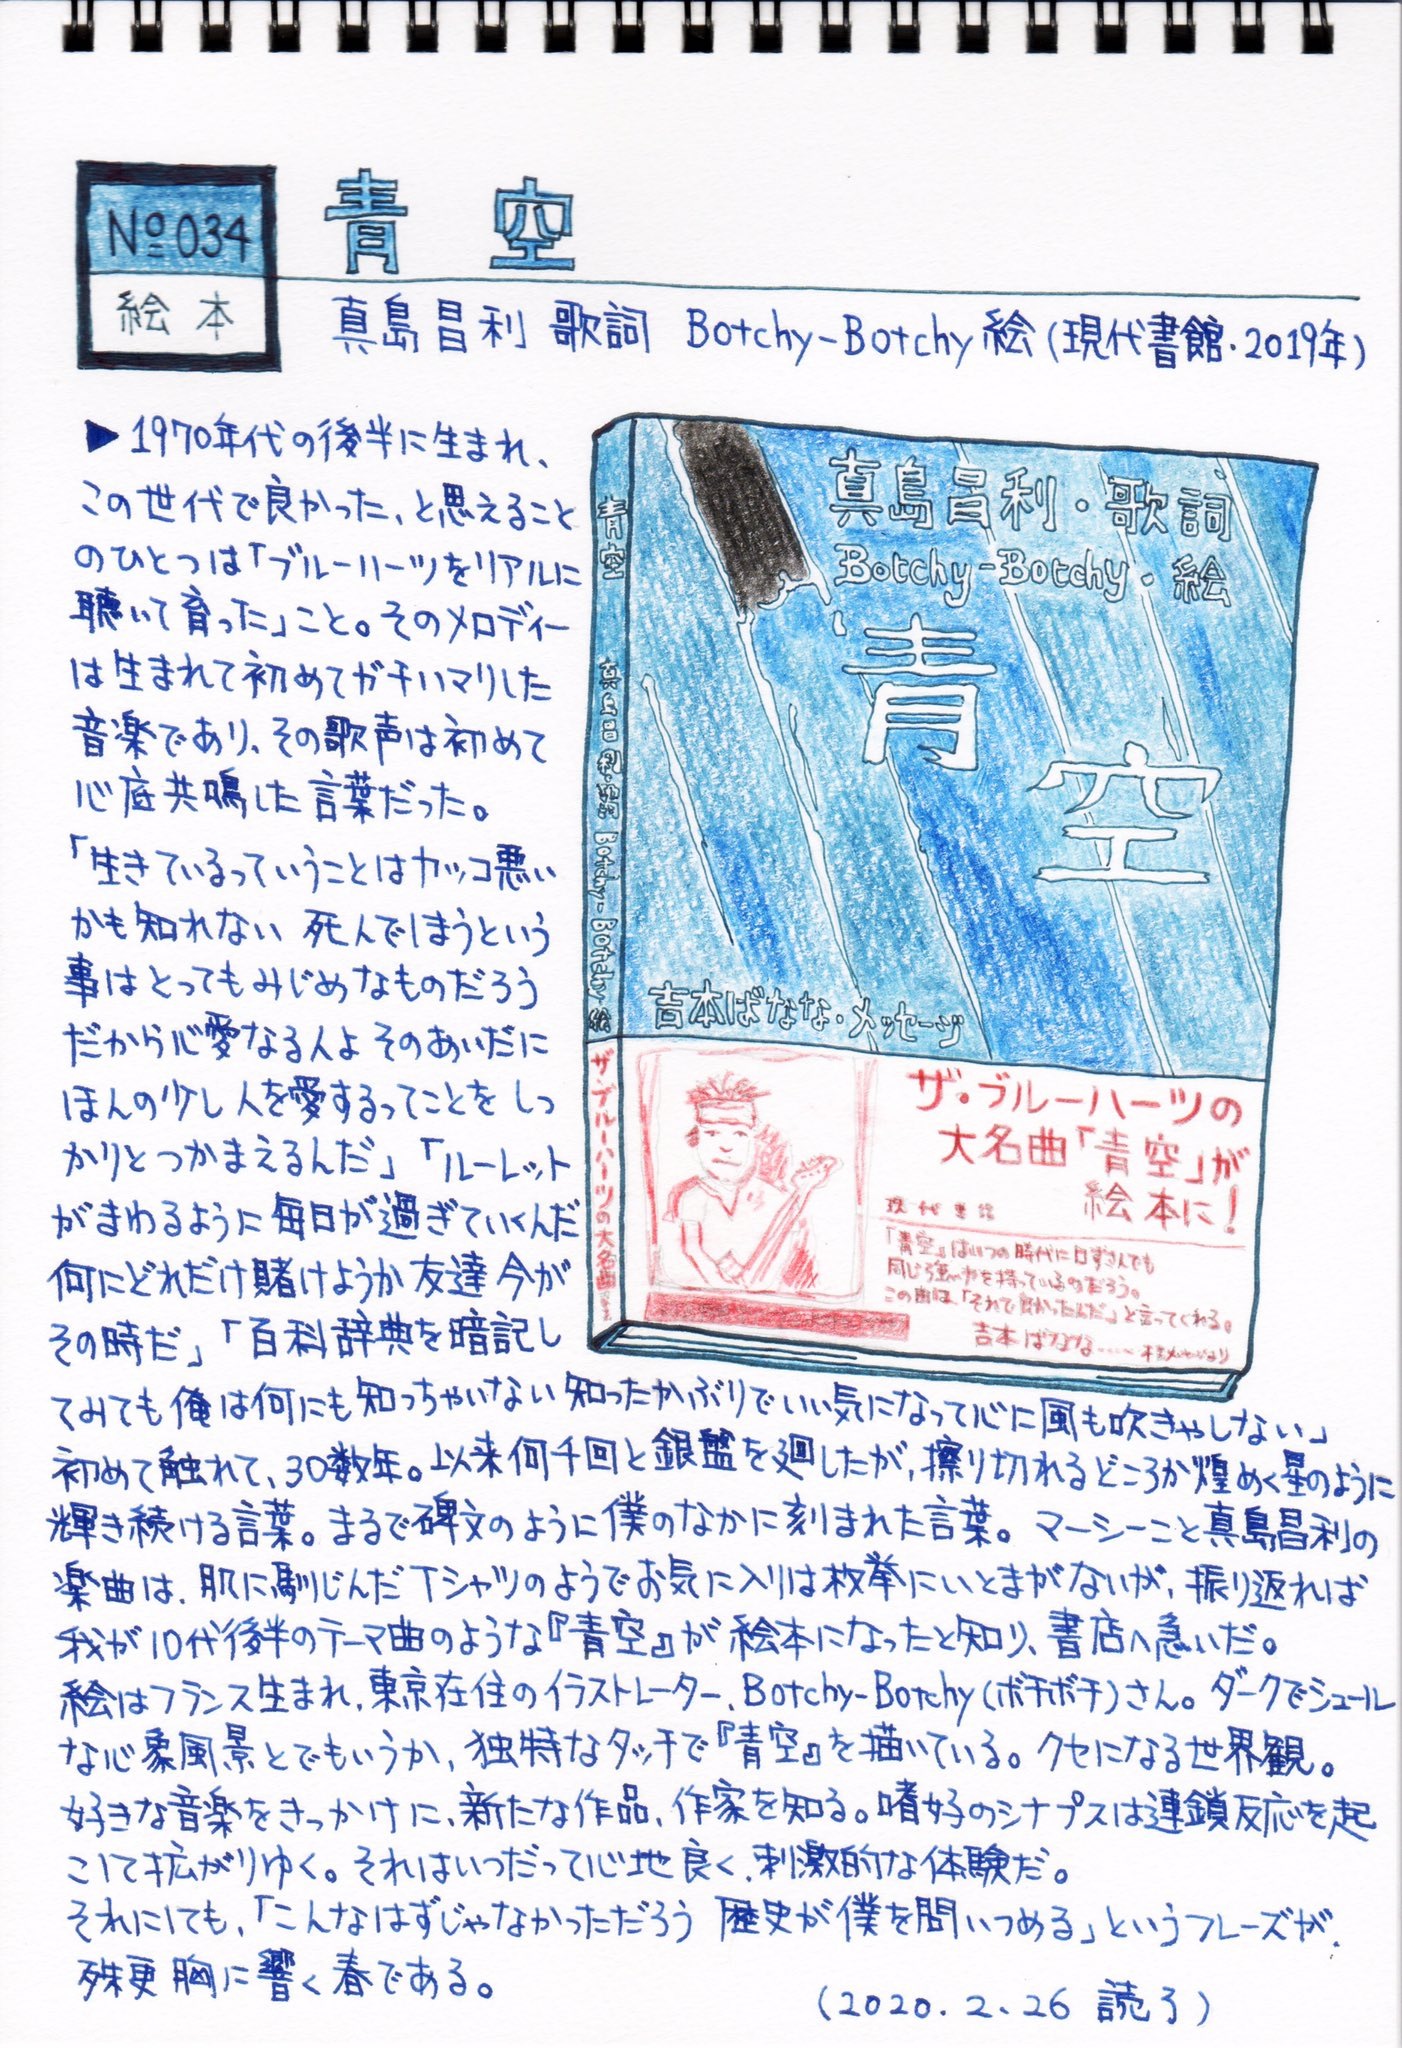 №034
絵本
青空
真島昌利 歌詞 Botchy-Botchy 絵(現代書館・2019年)
▶1970年代の後半に生まれ、
この世代で良かった、と思えること
のひとつは「ブルーハーツをリアルに
聴いて育った」こと。そのメロディー
は生まれて初めてガチハマリした
音楽であり、その歌声は初めて
心底共鳴した言葉だった。
「生きているっていうことはカッコ悪い
かも知れない 死んでしまうという
事はとってもみじめなものだろう
だから心愛なる人よ そのあいだに
ほんの少し人を愛するってことを しっ
かりとつかまえるんだ」「ルーレット
がまわるように毎日が過ぎていくんだ
何にどれだけ賭けようか 友達 今が
その時だ」「百科辞典を暗記し
てみても俺は何にも知っちゃいない 知ったかぶりでいい気になって心に風も吹きゃしない」
初めて触れて、30数年。以来何千回と銀盤を廻したが、擦り切れるどころか煌めく星のように
輝き続ける言葉。まるで碑文のように僕のなかに刻まれた言葉。マーシーこと真島昌利の
楽曲は、肌に馴じんだTシャツのようでお気に入りは枚挙にいとまがないが、振り返れば
我が10代後半のテーマ曲のような『青空』が絵本になったと知り、書店へ急いだ。
絵はフランス生まれ、東京在住のイラストレーター、Botchy-Botchy(ボチボチ)さん。ダークでシュール
な心象風景とでもいうか、独特なタッチで『青空』を描いている。クセになる世界観。
好きな音楽をきっかけに、新たな作品、作家を知る。嗜好のシナプスは連鎖反応を起
こして拡がりゆく。それはいつだって心地良く、刺激的な体験だ。
それにしても、「こんなはずじゃなかっただろう 歴史が僕を問いつめる」というフレーズが、
殊更胸に響く春である。
(2020.2.26 読了)
青空 真島昌利・歌詞 Botchy-Botchy・絵
ザ・ブルーハーツの大名曲
真島昌利・歌詞
Botchy-Botchy・絵
青空
吉本ばなな・メッセージ
ザ・ブルーハーツの
大名曲「青空」が
絵本に!
現代書館
「青空」はいつの時代に口ずさんでも
同じ強い力を持っているのだろう。
この曲は、「それで良かったんだ」と言ってくれる。
吉本ばなな